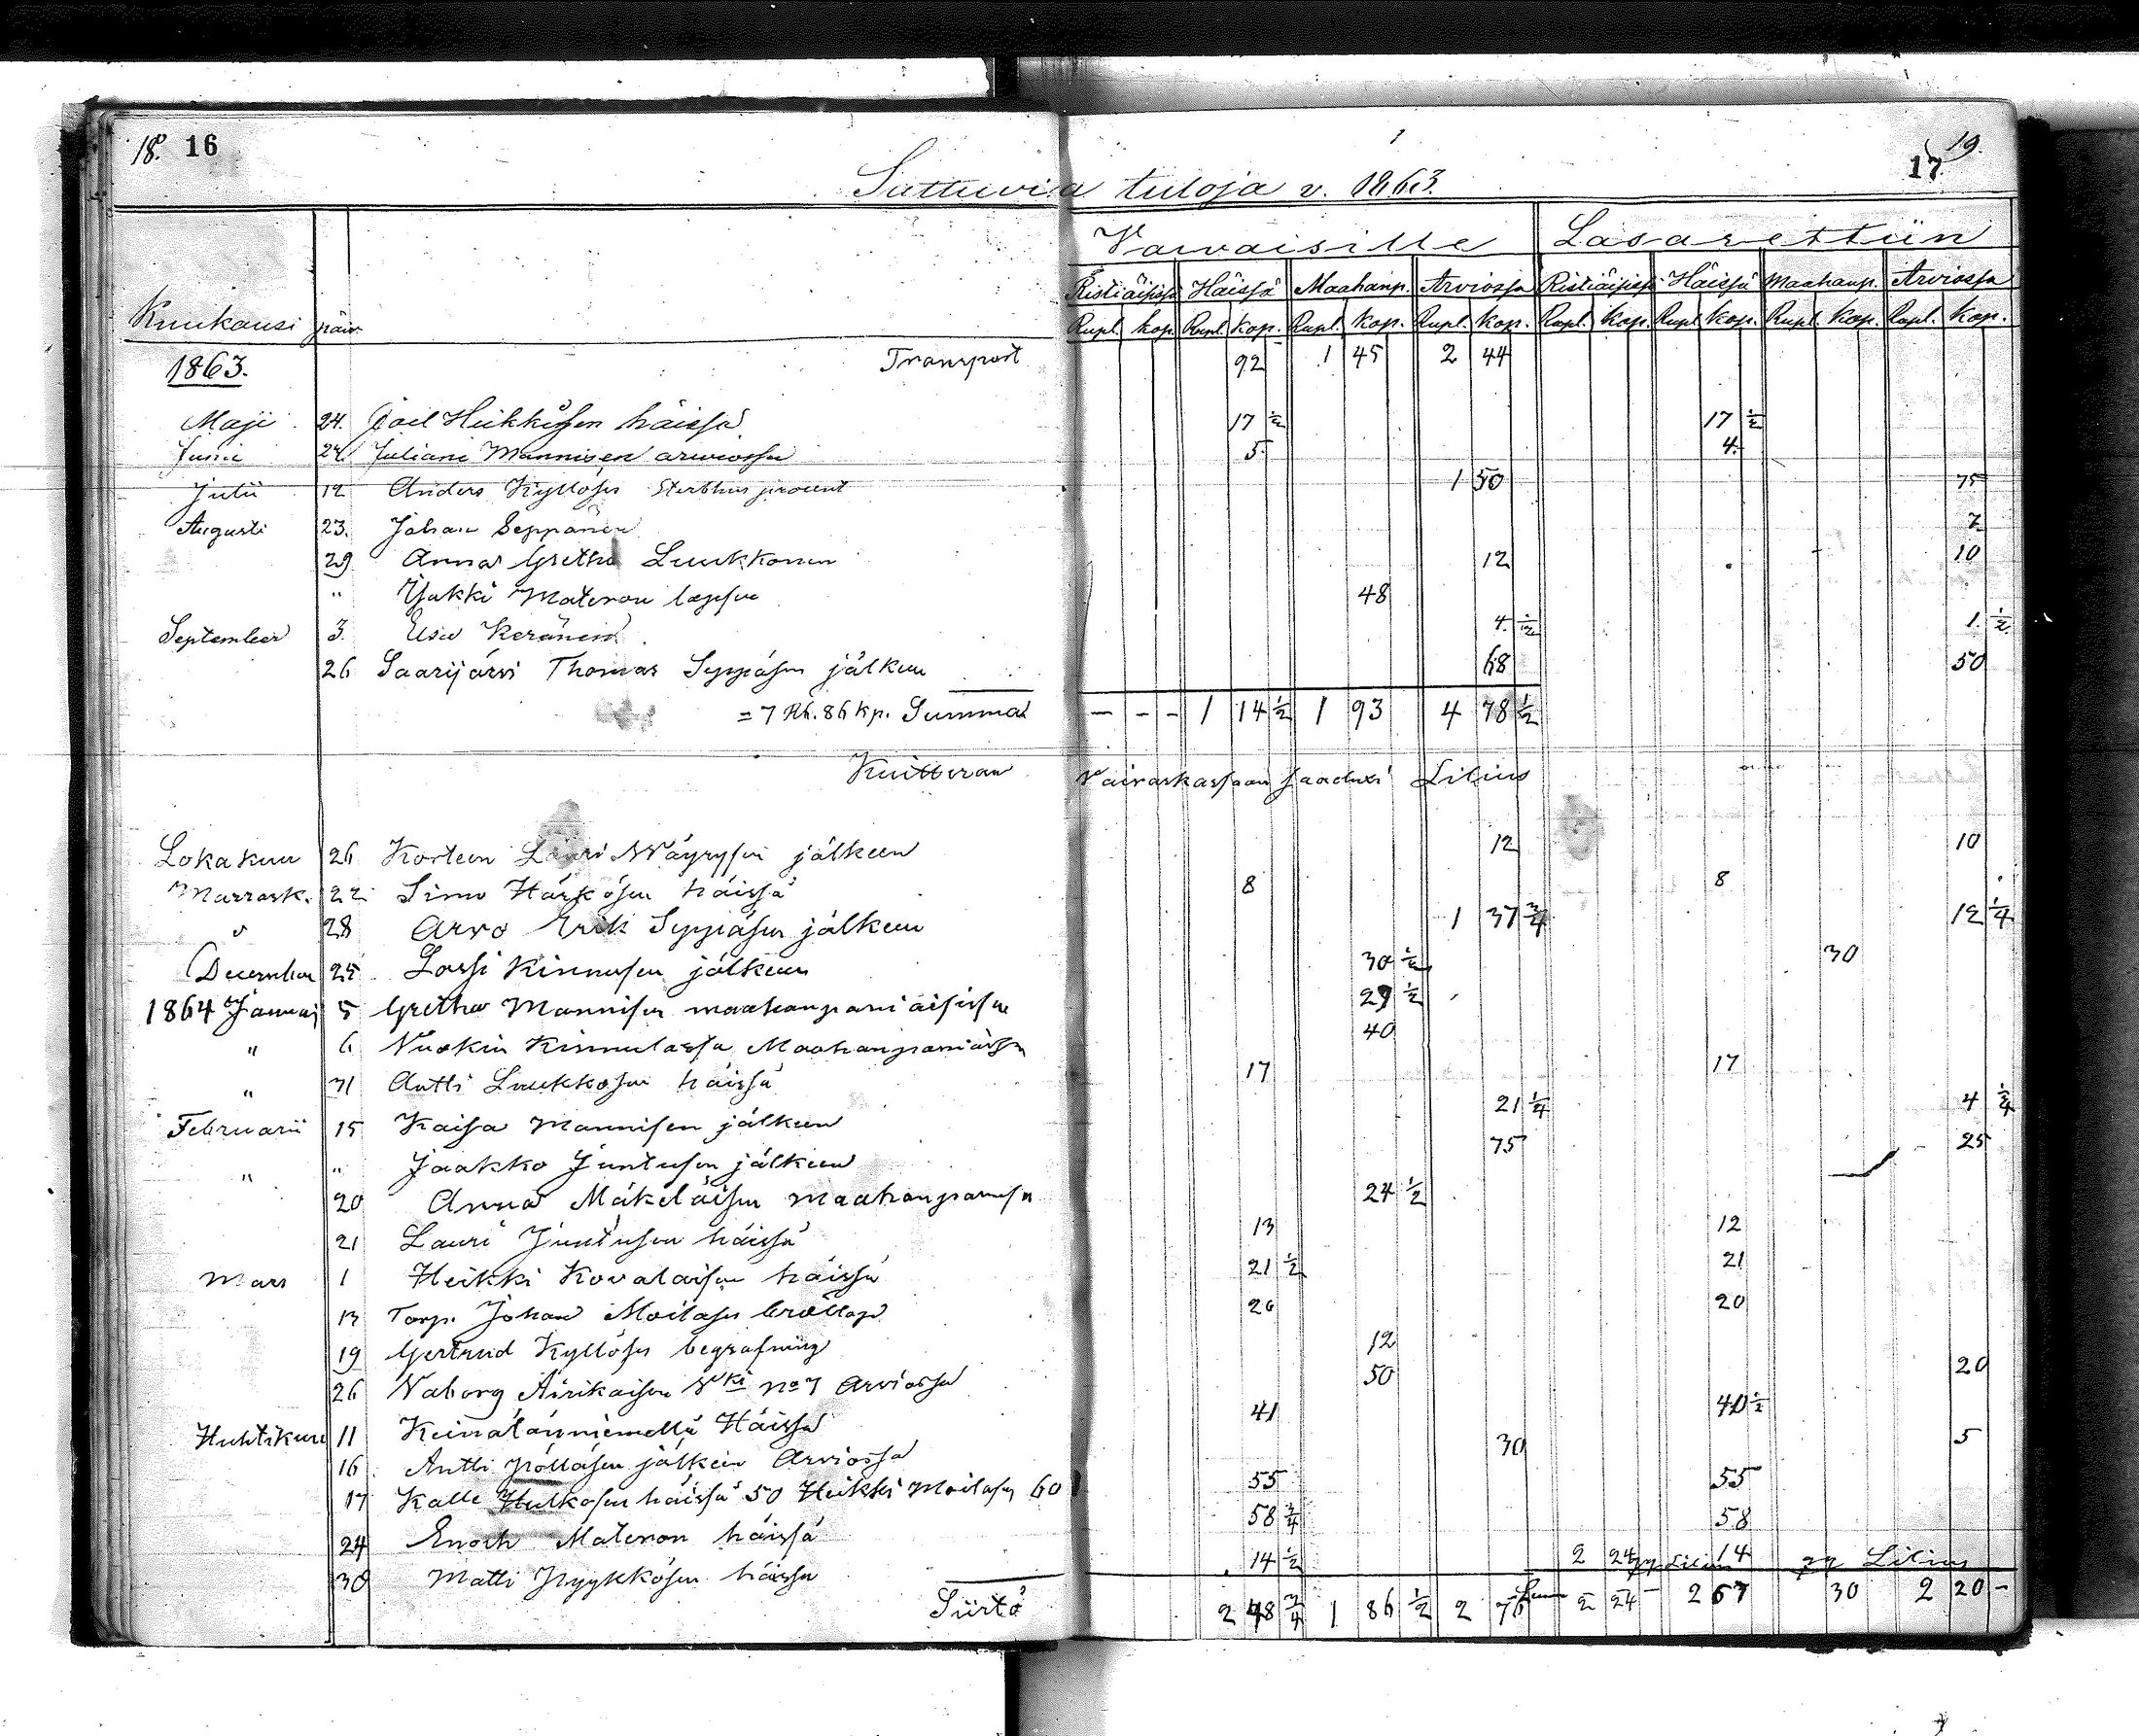 18. 16
17 19.
Sattuvia tuloja v. 1863.
Vaivaisille Lasarettiin
Ristiäisissä Häissä Maahanp. Arviossa Ristiäisissä Häissä Maahanp. Arviossa
Kuukausi päiv. Rupl. kop. Rupl. kop. Rupl. kop. Rupl. kop. Rupl. kop. Rupl. kop. Rupl. kop. Rupl. kop.
1863. Transport 92 1 45 2 44
Maji 24. Joel Heikkisen häissä 17 ½ 17 ½
Junii 24. Juliani Mannisen arviossa 5. 4.
Julii 12 Anders Kyllösis Sterbhus procent 1 50 75
Augusti 23. Johan Seppänen 7
29 Anna Gretha Luukkonen 12 10
" Materon lapsen 48
September 3. Keränen 4. ½ 1. ½
26 Saarijärvi Thomas Seppäsen jälkeen 68 50
= 7 Rb. 86 kp. Summa - - - 1 14 ½ 1 93 4 78 ½
Kuitteran Vaivaskassaan saaduxi Lilius
Lokakuu 26 Korteen Lauri Wäyrysen jälkeen 12 10
Marrask. 22 Simo Härkösen häissä 8 8
" 28 Arvo Erik Seppäsen jälkeen 1 37 ¾ 12 ¼
December 25 Lassi Kinnusen jälkeen 30 ½ 30
1864 Januarj 5 Gretha Mannisen maahanpaniaisissa 29 ½
" 6 Kinnulassa Maahanpaniaissa 40
" 31 Antti Luukkosen häissä 17 17
Februarii 15 Kaisa Mannisen jälkeen 21 ¼ 4 ¾
" " Jaakko Juntusen jälkeen 75 25
20 Anna Mäkeläisen maahanpanuissa 24 ½
21 Lauri Juntusen häissä 13 12
Mars 1 Heikki Kovalaisen häissä 21 ½ 21
13 Torp. Johan Moilasen bröllop 20 20
19 Gertrud Kyllösis begrafning 12
26 Naborg Airikaisen No 7 Arviossa 50 20
Huhtikuu 11 Keinätänniemellä Häissä 41 40 ½
16. Antti Pölläsen jälkeen Arviossa 30 5
17 Kalle Hulkosen häissä 50 Heikki Moilasen 60 55 55
24 Enoch Materon häissä 58 ¾ 58
30 Matti Pyykkösen häissä 14 ½ 2 24 Lilius 14 Lilius
Siirtö 2 48 ¾ 1 86 ½ 2 76 2 24 - 2 67 30 2 20 -